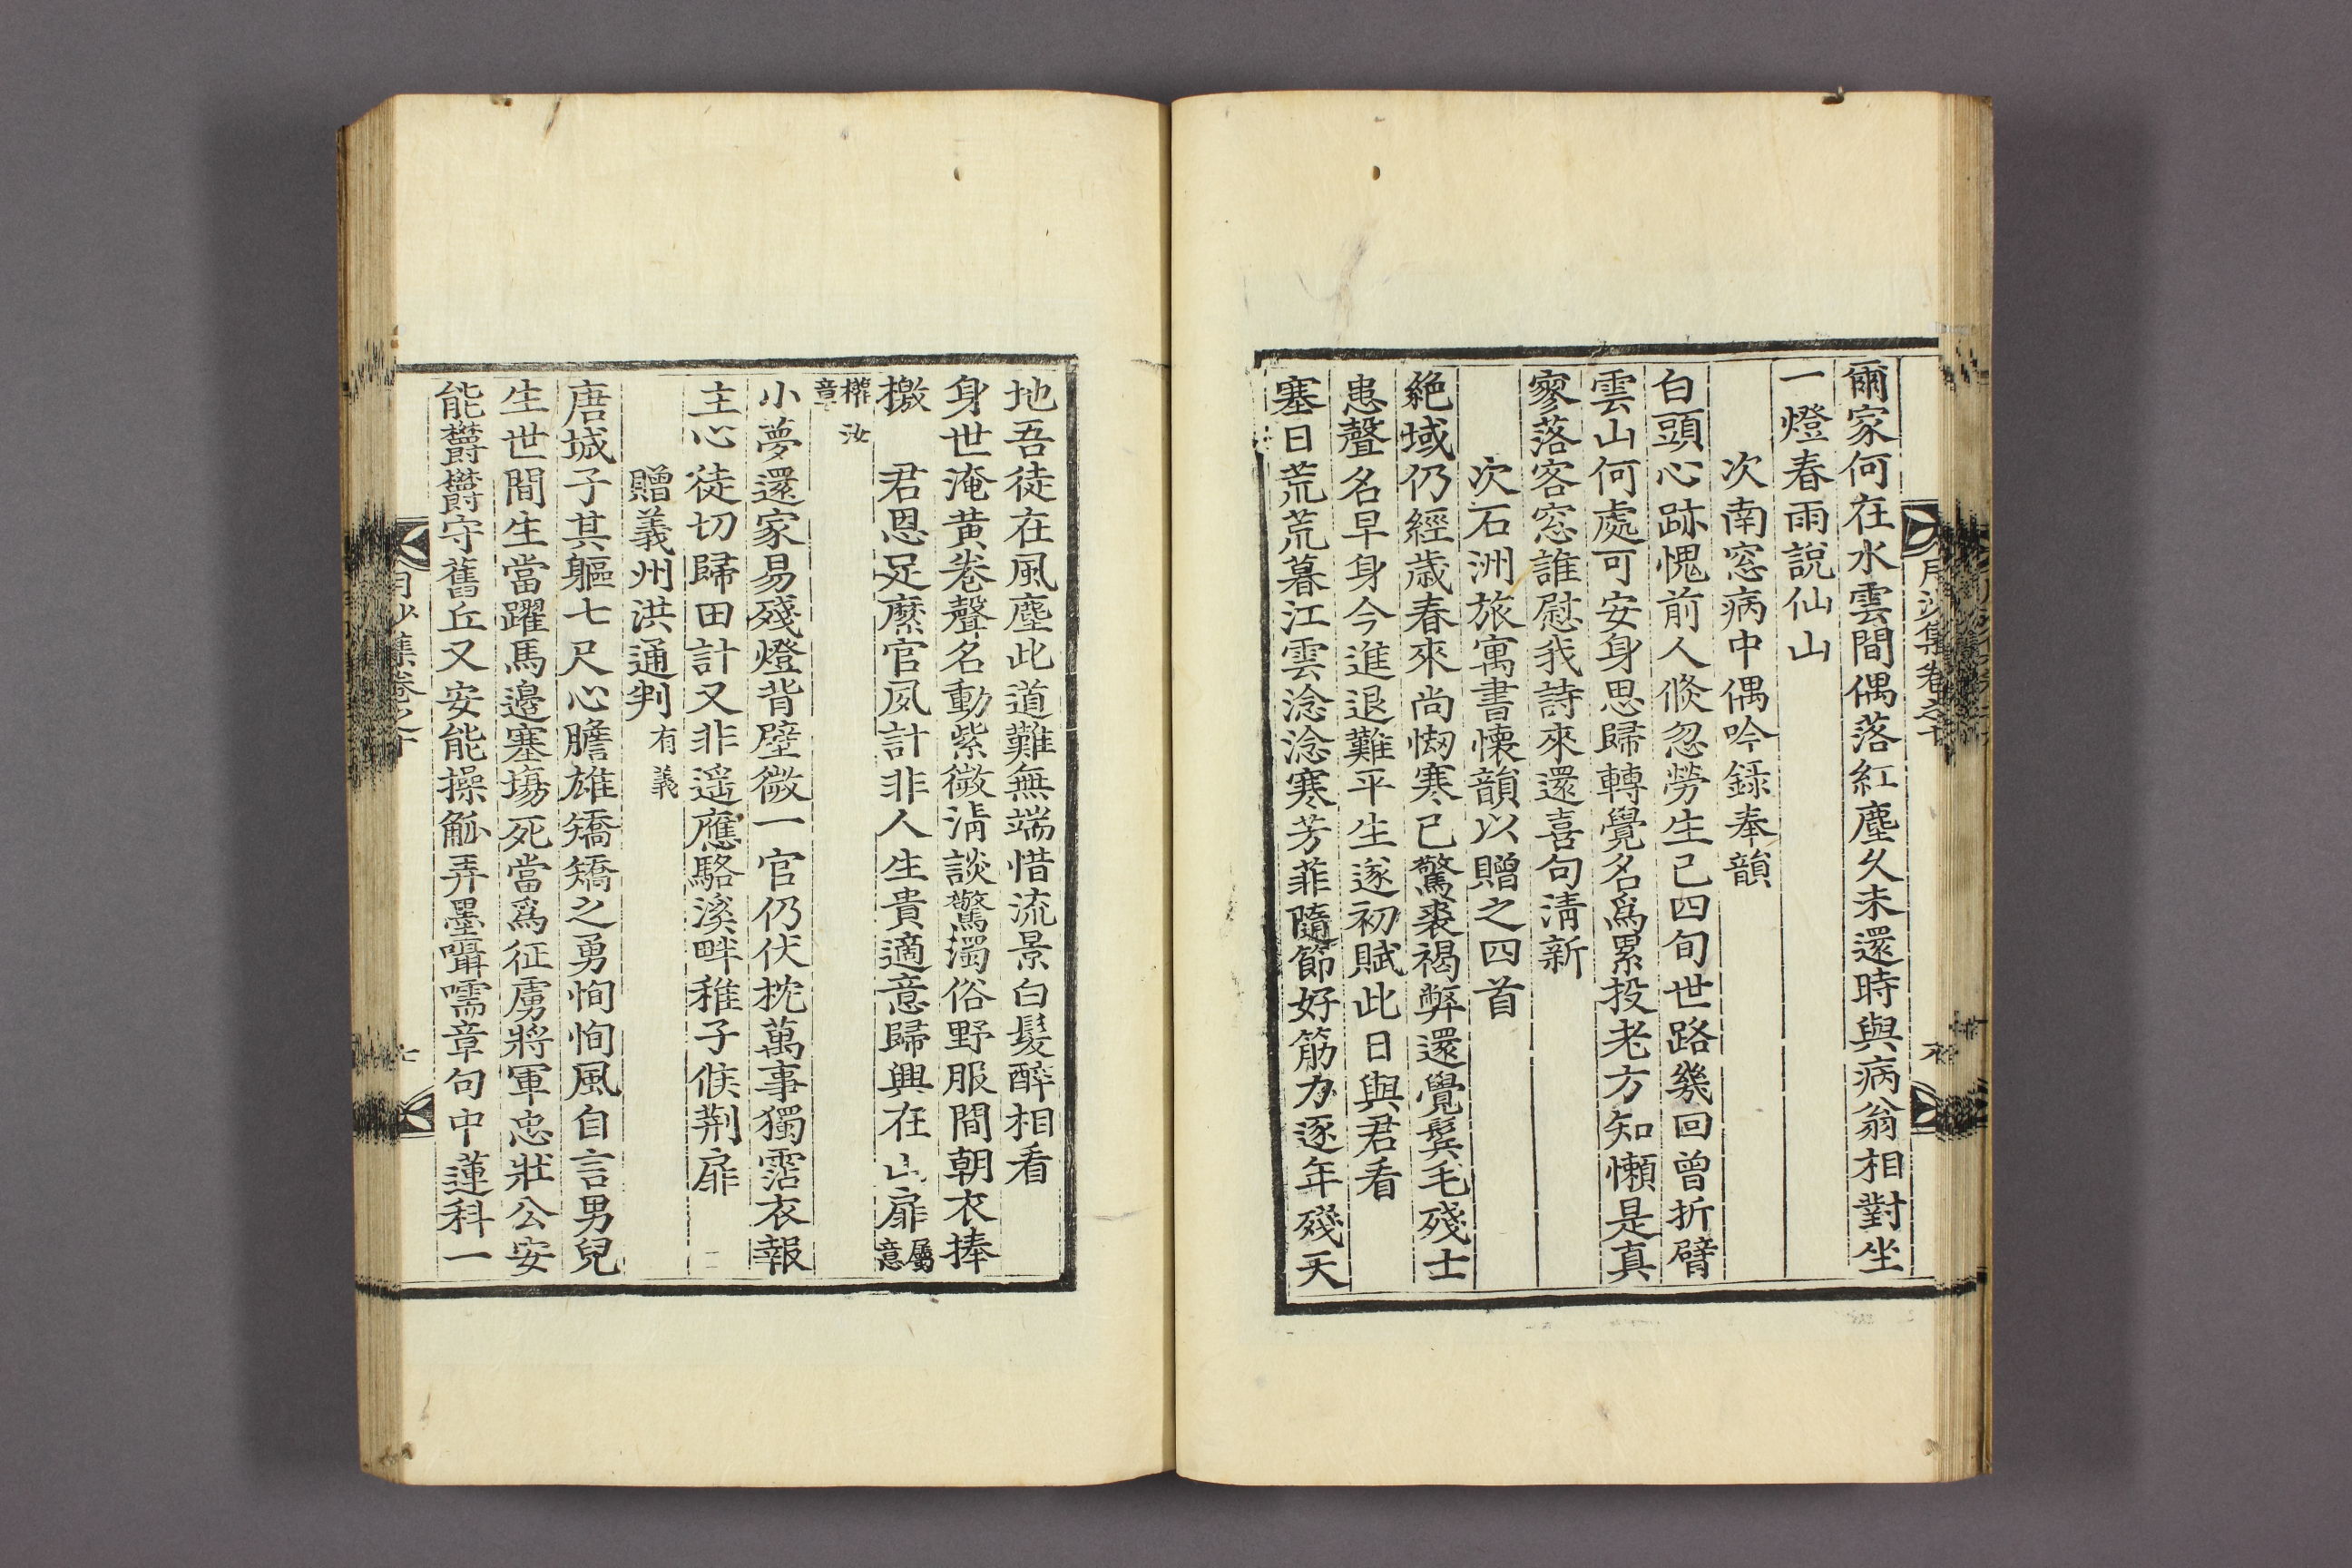 爾家何在水雲間偶落紅塵久未還時與病翁相對坐
一燈春雨說仙山
次南窓病中偶吟錄奉韻
白頭心跡愧前人倐忽勞生已四旬世路幾回曾折臂
雲山何處可安身思歸轉覺名爲累投老方知懶是真
寥落客窓誰慰我詩來還喜句淸新
次石洲旅寓書懷韻以贈之四首
絶域仍經歲春來尚㤼寒已驚裘褐弊還覺鬂毛殘士
患聲名早身今進退難平生遂初賦此日與君看
塞日荒荒暮江雲淰淰寒芳菲隨節好筋力逐年殘天
地吾徒在風塵此道難無端惜流景白髮醉相看
身世淹黃卷聲名動紫微淸談驚濁俗野服間朝衣捧
檄 君恩足縻官夙計非人生貴適意歸興在山扉屬意
權汝章
小夢還家易殘燈背壁微一官仍伏枕萬事獨霑衣報
主心徒切歸田計又非遥應駱溪畔稚子候荆扉
贈義州洪通判有義
唐城子其軀七尺心膽雄矯矯之勇恂恂風自言男兒
生世間生當躍馬邊塞塲死當爲征虜將軍忠壯公安
能欝欝守舊丘又安能操觚弄墨囁嚅章句中蓮科一
月沙集卷之十
七